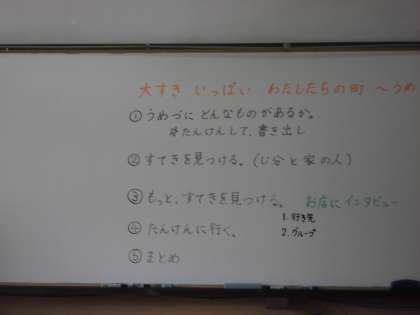 大すき いっぱい わたしたちの町 〜うめ
①うめづに どんなものがあるか。
たんけんして、書き出し
②すてきを見つける。(じ分と家の人)
③もっと、すてきを見つける。 お店にインタビュー
1. 行き先
④たんけんに行く。 2. グループ
⑤まとめ